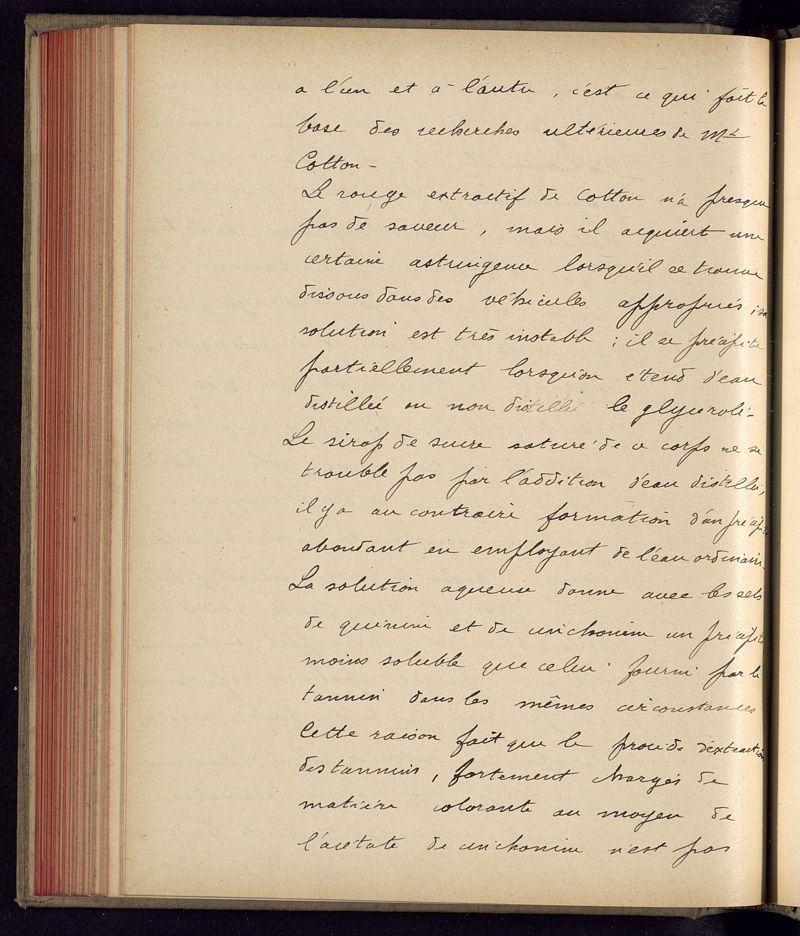 a l'un et a l'autre, c'est ce qui fait la
base des recherches ultérieures de Mr
Cotton -
Le rouge extractif de Cotton n'a presque
pas de saveur, mais il acquiert une
certaine astringence lorsqu'il se trouve
dissous dans des véhicules appropriés ; sa
solution est très instable ; il se précipite
partiellement lorsqu'on etend d'eau
distillée ou non distillée le glycerolé -
Le sirop de sucre saturé de ce corps ne se
trouble pas par l'addition d'eau distillée,
il y a au contraire formation d'un précipité
abondant en employant de l'eau ordinaire
La solution aqueuse donne avec les sels
de quinine et de cinchonine un précipité
moins soluble que celui fourni par le
tannin dans les mêmes circonstances
Cette raison fait que le procédé d'extraction
des tannins, fortement chargés de
matière colorante au moyen de
l'acétate de cinchonine n'est pas